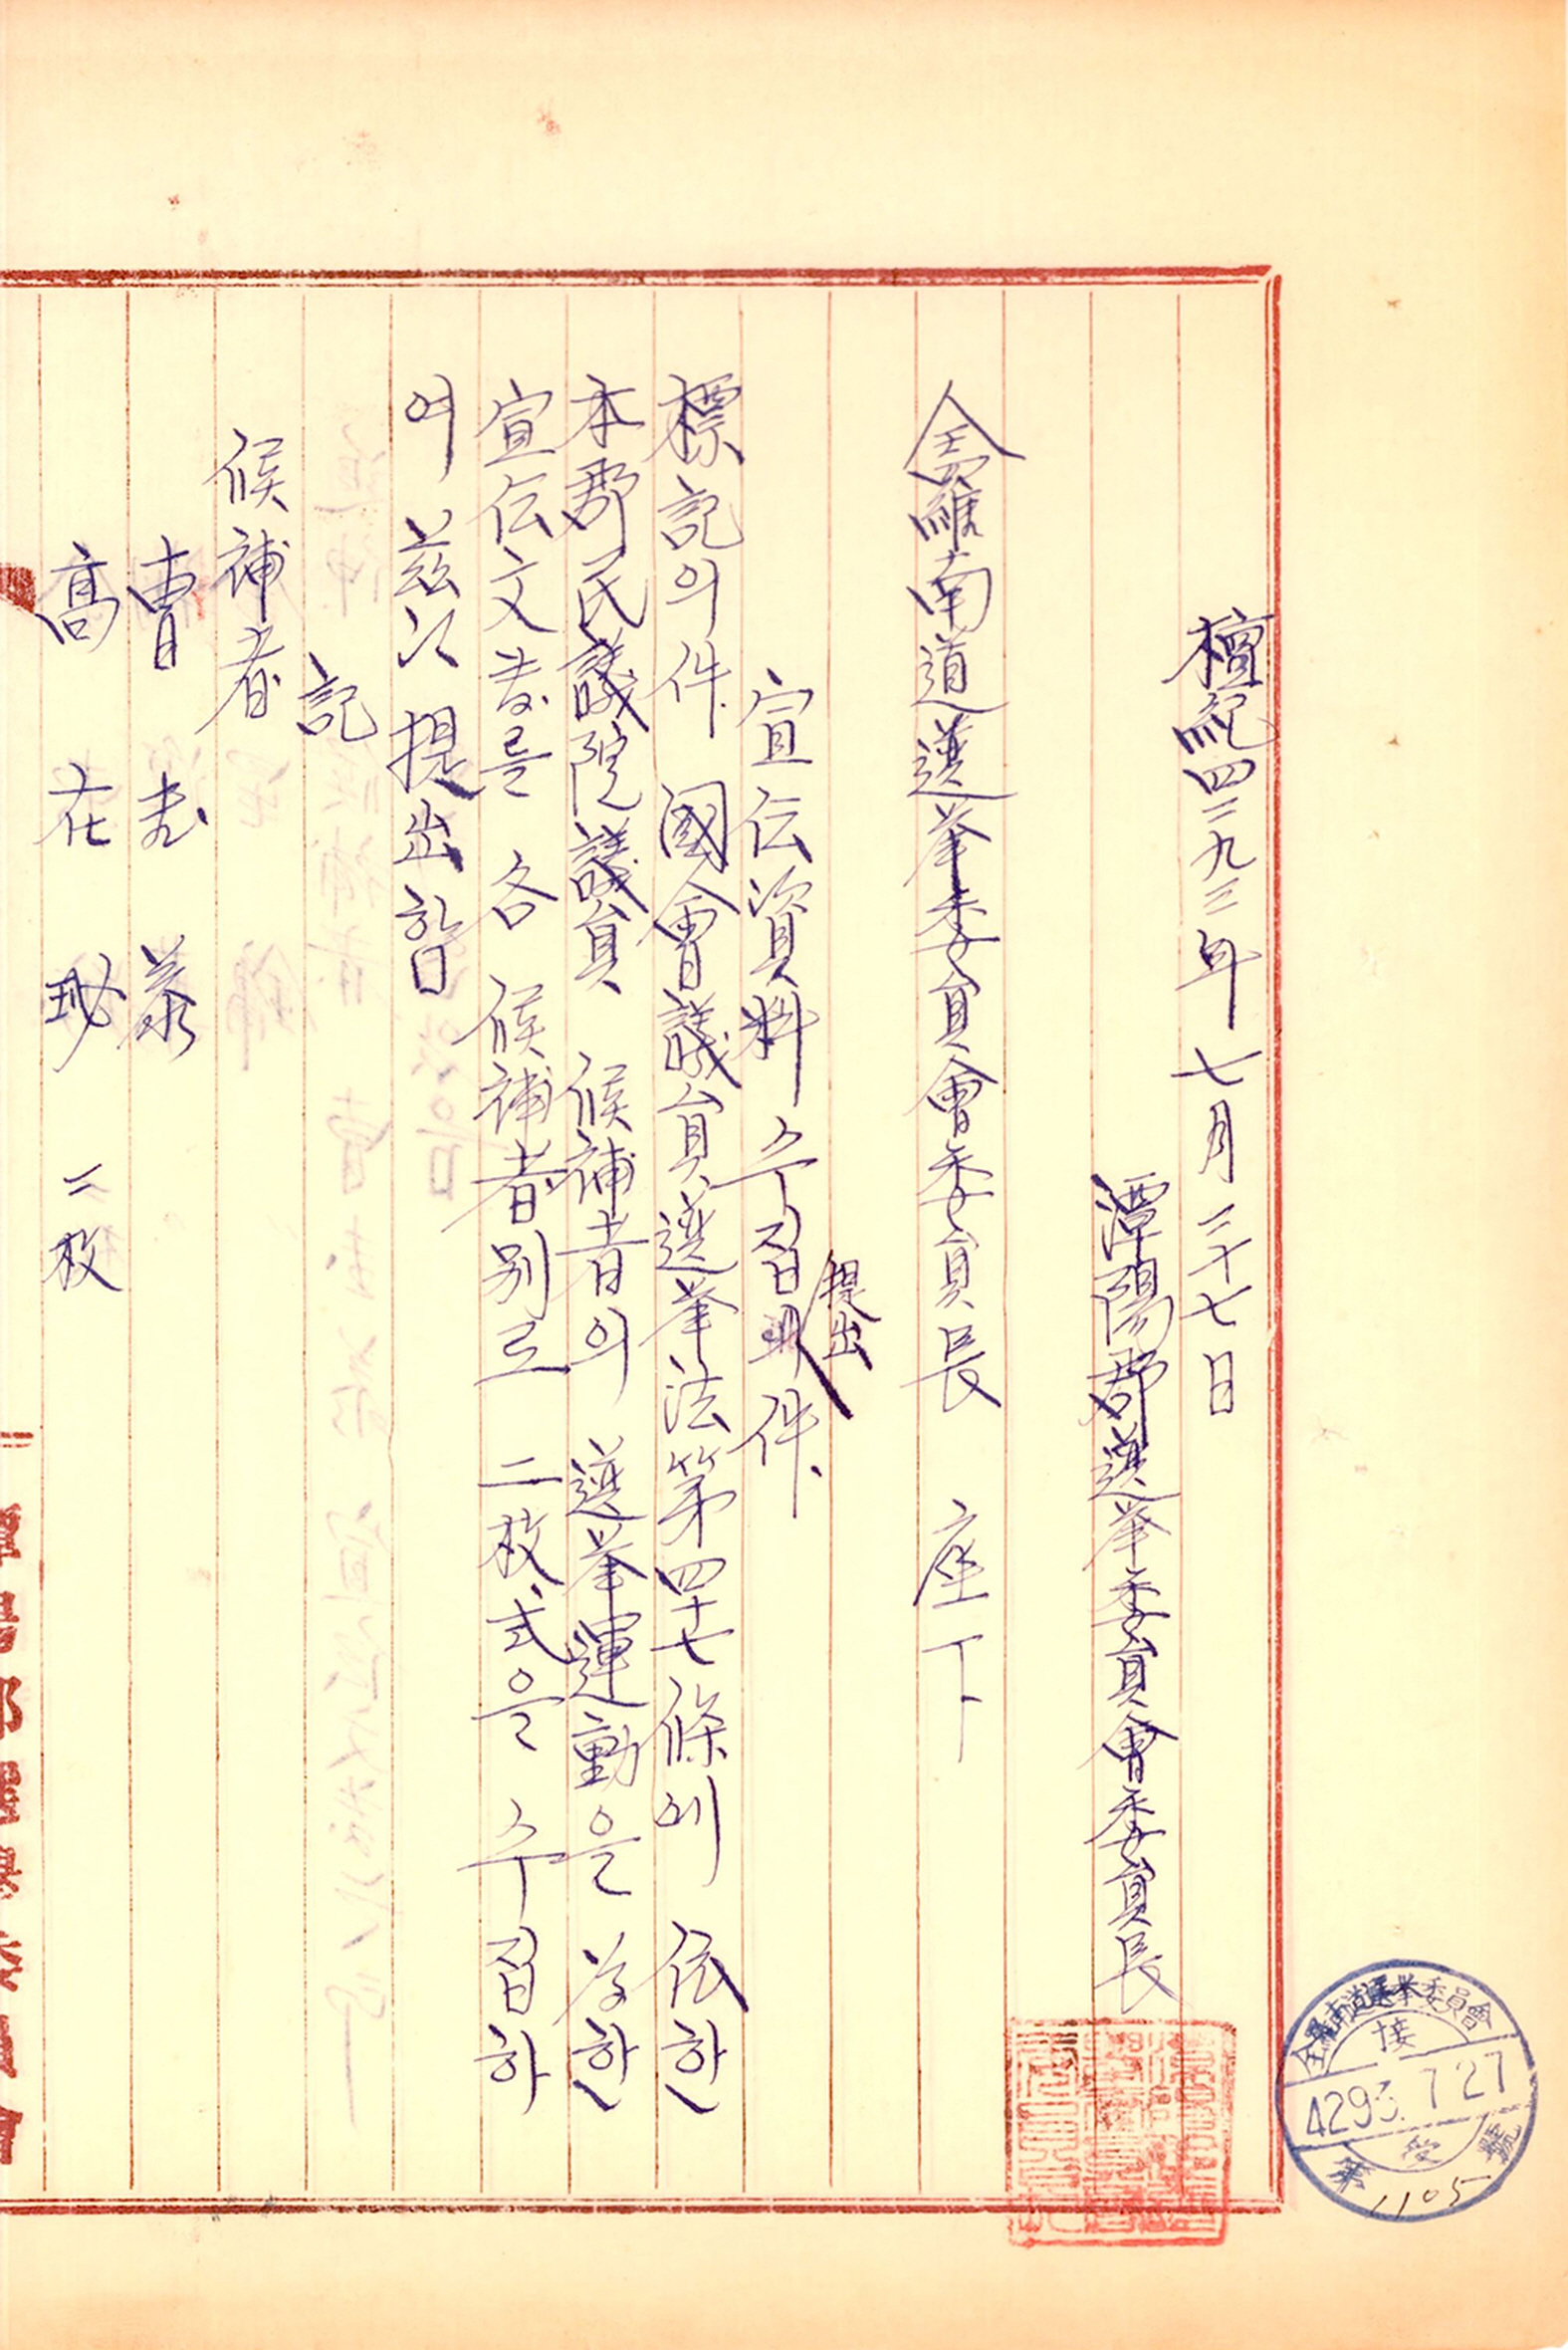 檀紀四二九三年 七月 二十七日
潭陽郡選挙委員會委員長
全羅南道選挙委員會委員長 座下
提出
宣伝資料 수집의件.
標記의件. 國會議員選挙法第四十七條에 依한
本郡民議院議員 候補者의 選挙運動을 为한
宣伝文书를 各 候補者別로 二枚式을 수집하
여 玆以 提出함
記
候補者
曺 泳
高 在 珌 二枚
全羅南道選挙委員會
接
4293. 7 27
受
第 1105 號